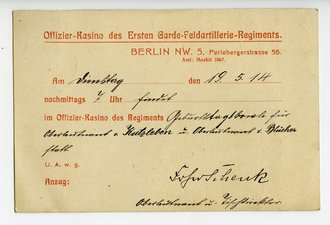 Offizier-Kasino des Ersten Garde-Feldartillerie-Regiments.
BERLIN NW. 5, Perlebergerstrasse 56.
Amt: Moabit 1067.
Am Dienstag den 19.5.14
nachmittags 7 Uhr findet
im Offizier-Kasino des Regiments Geburtstagsbowle für
Oberleutnant v. Hutzleben u. Oberleutnant v. Blücher
statt.
U. A. w. g.
Anzug:
Schenk
Oberleutnant u. Tischdirektor